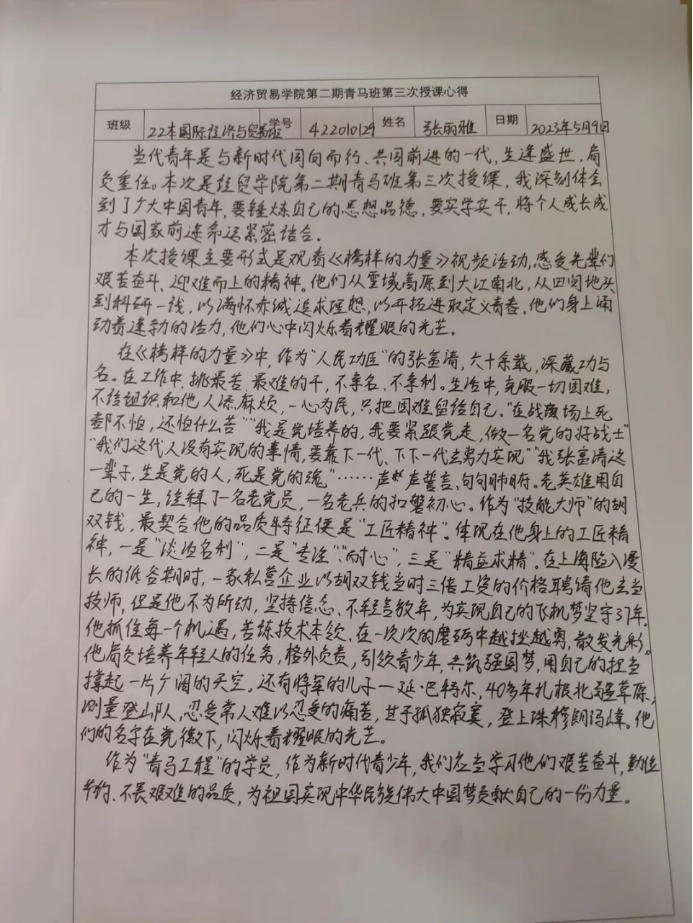 经济贸易学院第二期青马班第三次授课心得
班级 22本国际经济与贸易 学号 422010129 姓名 张丽雅 日期 2023年5月9日
当代青年是与新时代同向而行、共同前进的一代,生逢盛世,肩
负重任。本次是经贸学院第二期青马班第三次授课,我深刻体会
到了广大中国青年,要锤炼自己的思想品德,要实学实干,将个人成长成
才与国家前途命运紧密结合。
本次授课主要形式是观看《榜样的力量》视频活动,感受先辈们
艰苦奋斗、迎难而上的精神。他们从雪域高原到大江南北,从田间地头
到科研一线,以满怀赤诚追求理想,以开拓进取定义青春。他们身上涌
动着蓬勃的活力,他们心中闪烁着耀眼的光芒。
在《榜样的力量》中,作为“人民功臣”的张富清,六十余载,深藏功与
名。在工作中,挑最苦、最难的干,不争名、不争利。生活中,克服一切困难,
不给组织和他人添麻烦,一心为民,只把困难留给自己。“在战场上死
都不怕,还怕什么苦”“我是党培养的,我要紧跟党走,做一名党的好战士”
“我们这代人没有实现的事情,要靠下一代、下下一代去努力实现”“我张富清这
一辈子,生是党的人,死是党的魂”……声声誓言、句句肺腑。老英雄用自
己的一生,诠释了一名老党员,一名老兵的初心。作为“技能大师”的胡
双钱,最契合他的品质特征便是“工匠精神”。体现在他身上的工匠精
神,一是“淡泊名利”,二是“专注”、“耐心”,三是“精益求精”。在上海陷入漫
长的低谷期时,一家私营企业以胡双钱当时三倍工资的价格聘请他去当
技师,但是他不为所动,坚持信念、不轻言放弃,为实现自己的飞机梦坚守37年。
他抓住每一个机遇,苦练技术本领,在一次次的磨砺中越挫越勇,散发光彩。
他肩负培养年轻人的任务,格外负责,引领青少年,共筑强国梦,用自己的担当
撑起一片广阔的天空。还有将军的儿子—廷·巴特尔,40多年扎根北疆草原,
测量登山队,忍受常人难以忍受的痛苦,甘于孤独寂寞,登上珠穆朗玛峰。他
们的名字在党徽下,闪烁着耀眼的光芒。
作为“青马工程”的学员,作为新时代青少年,我们应当学习他们艰苦奋斗,勤俭
节约、不畏艰难的品质,为祖国实现中华民族伟大中国梦贡献自己的一份力量。